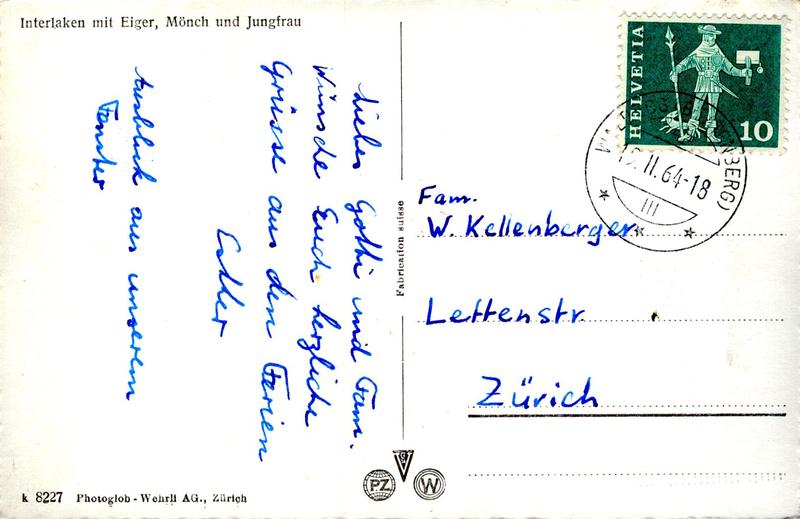 Interlaken mit Eiger, Mönch und Jungfrau
Liebes Gotti und Fam.
Wünsche Euch herzliche
Grüsse aus den Ferien
Esther
Ausblick aus unserem
Fenster
Fabrication suisse
HELVETIA
10
BERG)
II.64-18
III
Fam.
W. Kellenberger
Lettenstr.
Zürich
PZ
W
k 8227 Photoglob-Wehrli AG., Zürich